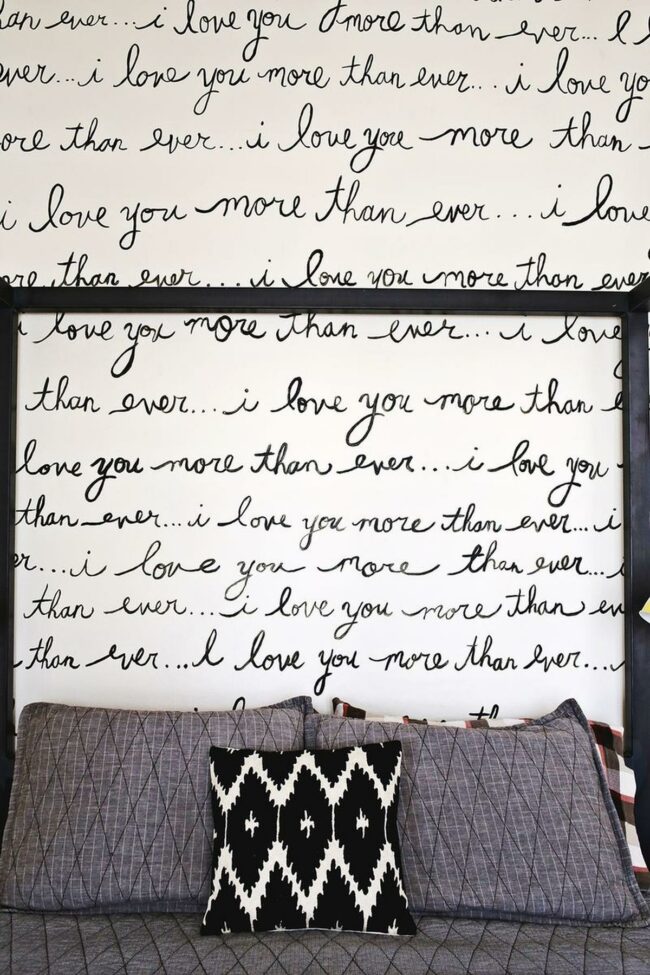 an ever... i love you more than ever... I l
ever... i love you more than ever... i love yo
ore than ever... i love you more than
i love you more than ever... i love
re than ever... i love you more than ever
i love you more than ever... i love
than ever... i love you more than e
love you more than ever... i love you
than ever... i love you more than ever... i
er... i love you more than ever... i
than ever... i love you more than ev
than ever... I love you more than ever...